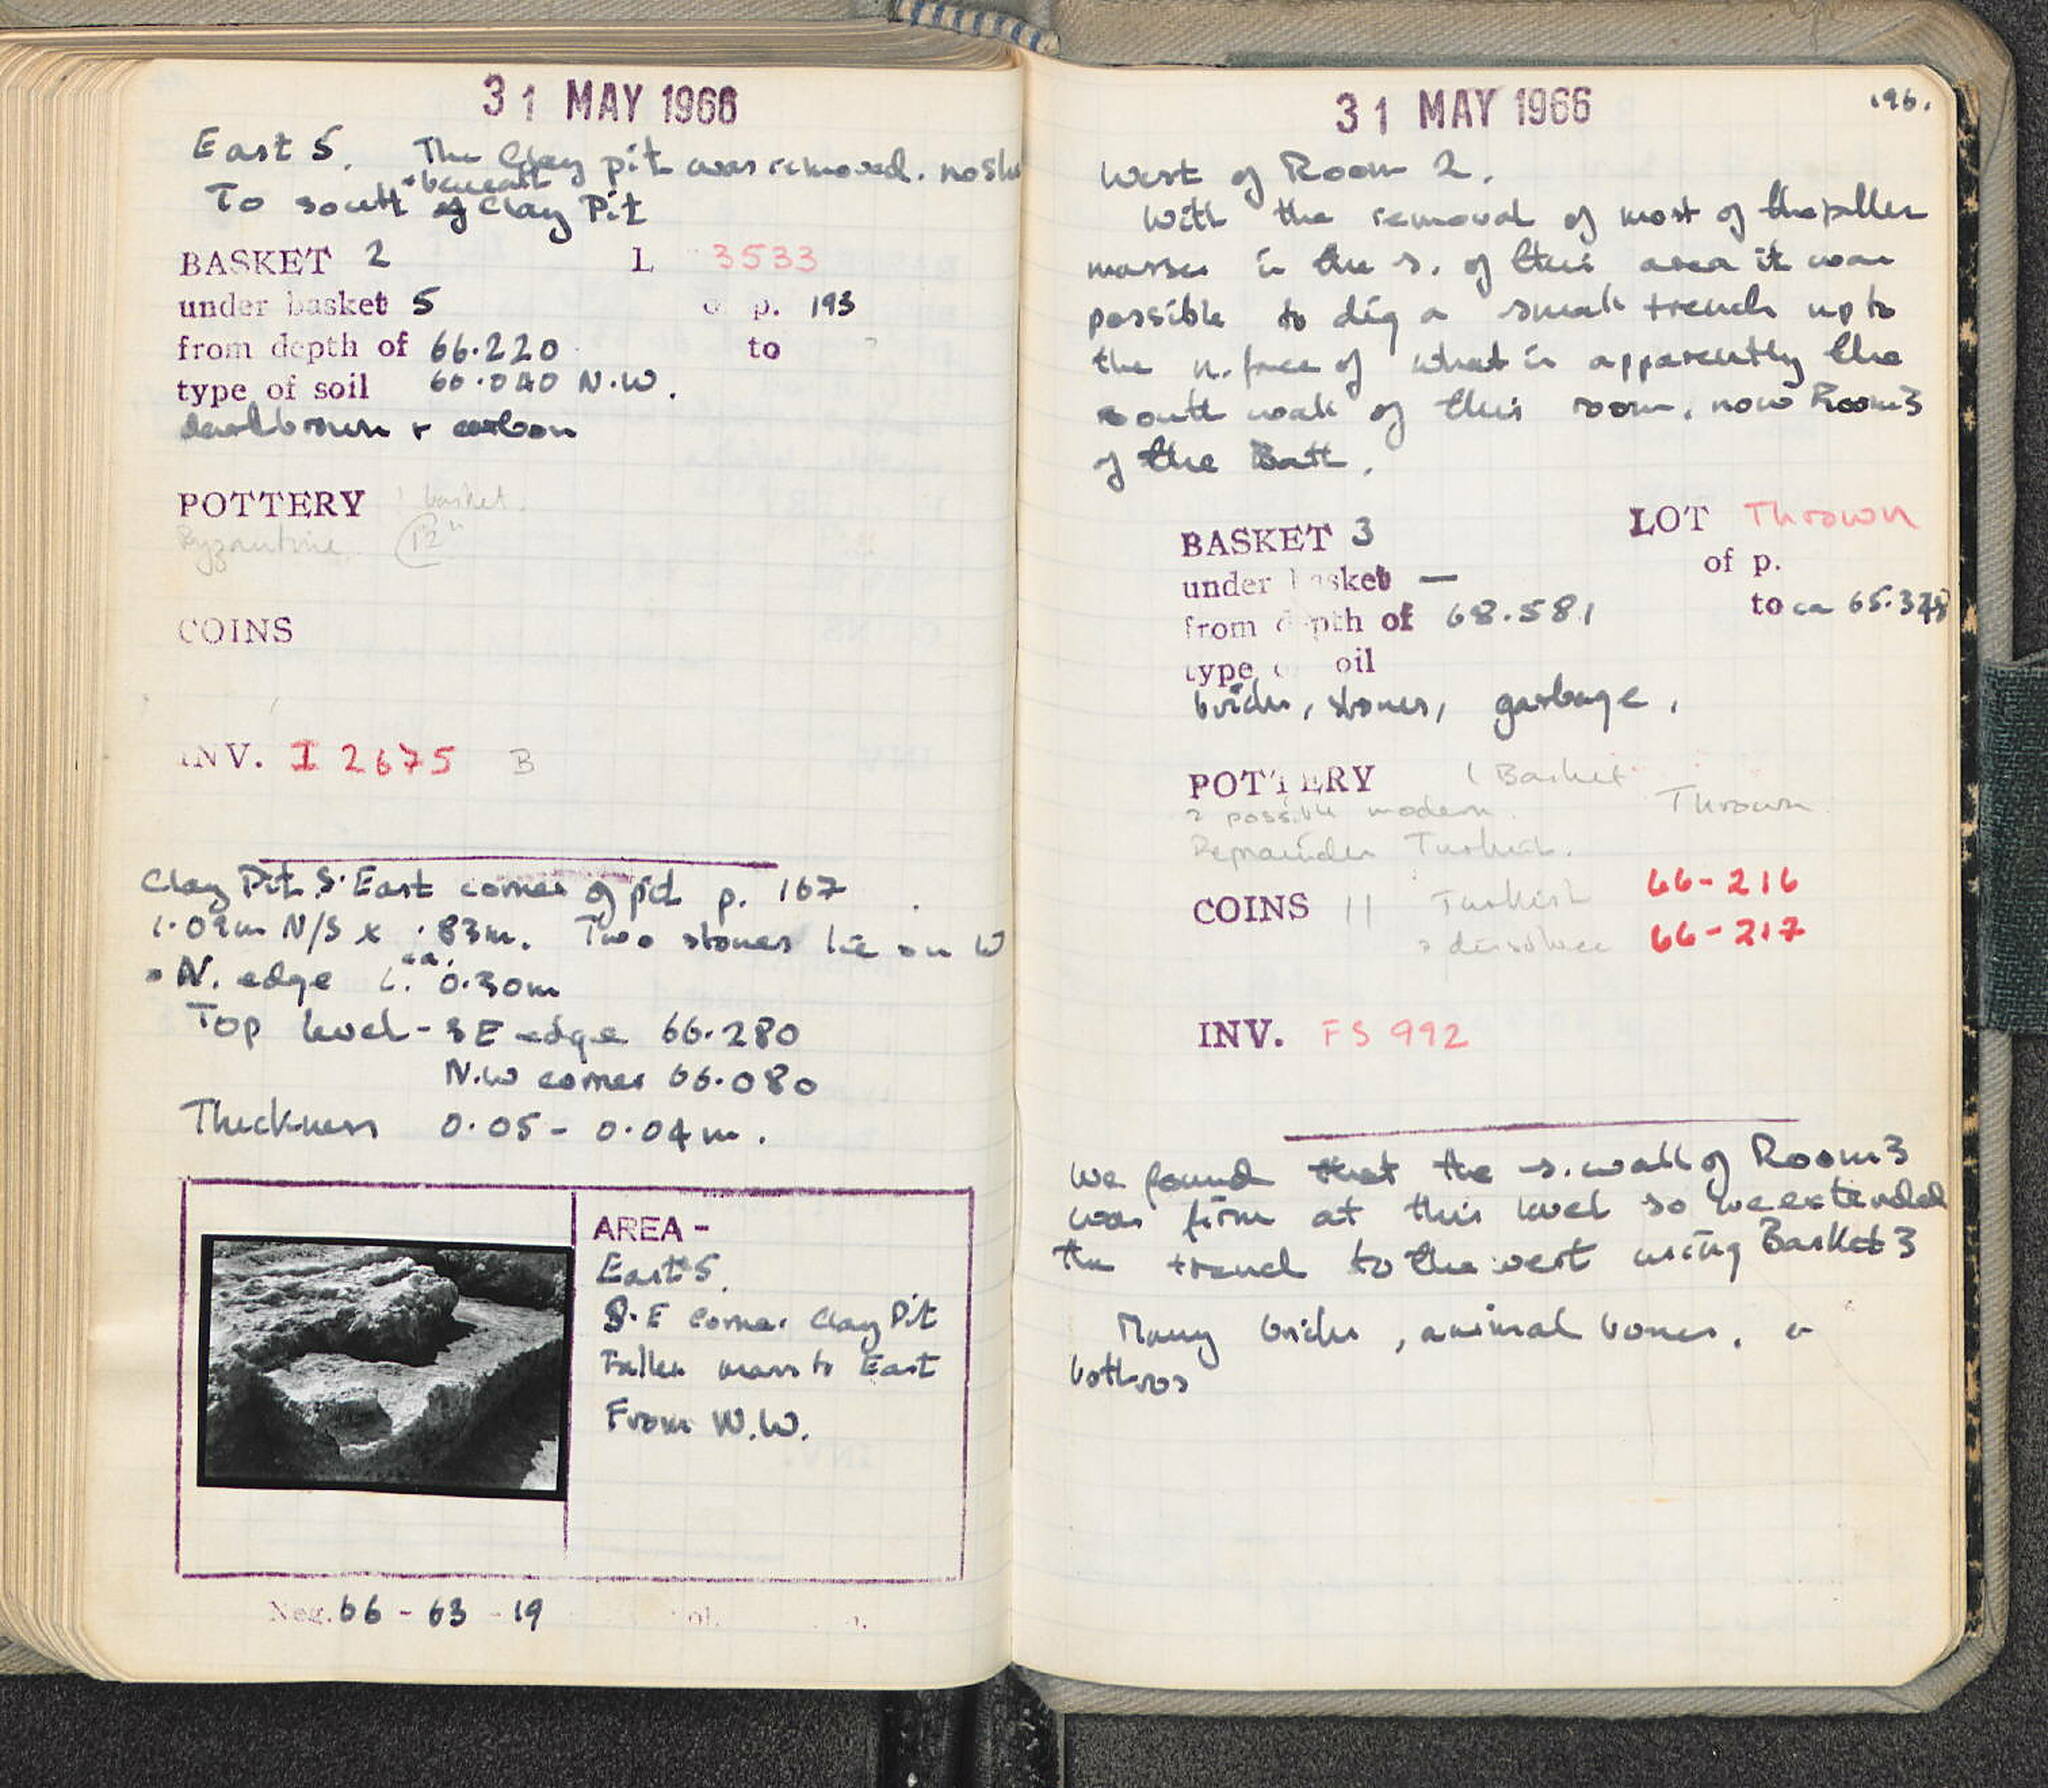 31 MAY 1966
East 5. The Clay pit was removed.
beneath
To South of Clay Pit
BASKET 2 L 3533
under basket 5 p. 193
from depth of 66.220 to
type of soil 66.040 N.W.
dark brown + carbon
POTTERY 1 basket.
Byzantine
COINS
INV. I 2675 B
Clay Pit S. East corner of pit p. 167
1.09m N/S x .83m. Two stones lie on W
N. edge ca. 0.30m
Top level - SE edge 66.280
N.W corner 66.080
Thickness 0.05 - 0.04m.
AREA -
East 5.
S.E corner Clay Pit
Fallen mass to East
From N.W.
Neg. 66 - 63 - 19
31 MAY 1966
196.
West of Room 2.
With the removal of most of the pillar
masses in the S. of this area it was
possible to dig a small trench up to
the n. face of what is apparently the
south wall of this room, now Room 3
of the Bath.
BASKET 3 LOT Thrown
under basket — of p.
from depth of 68.581 to ca 65.378
type oil
bricks, stones, garbage.
POTTERY 1 Basket
2 possible modern. Thrown
Remainder Turkish.
COINS 11 Turkish 66-216
66-217
INV. FS 992
We found that the s. wall of Room 3
was firm at this level so we extended
the trench to the west using Basket 3
Many bricks, animal bones, a
bothros